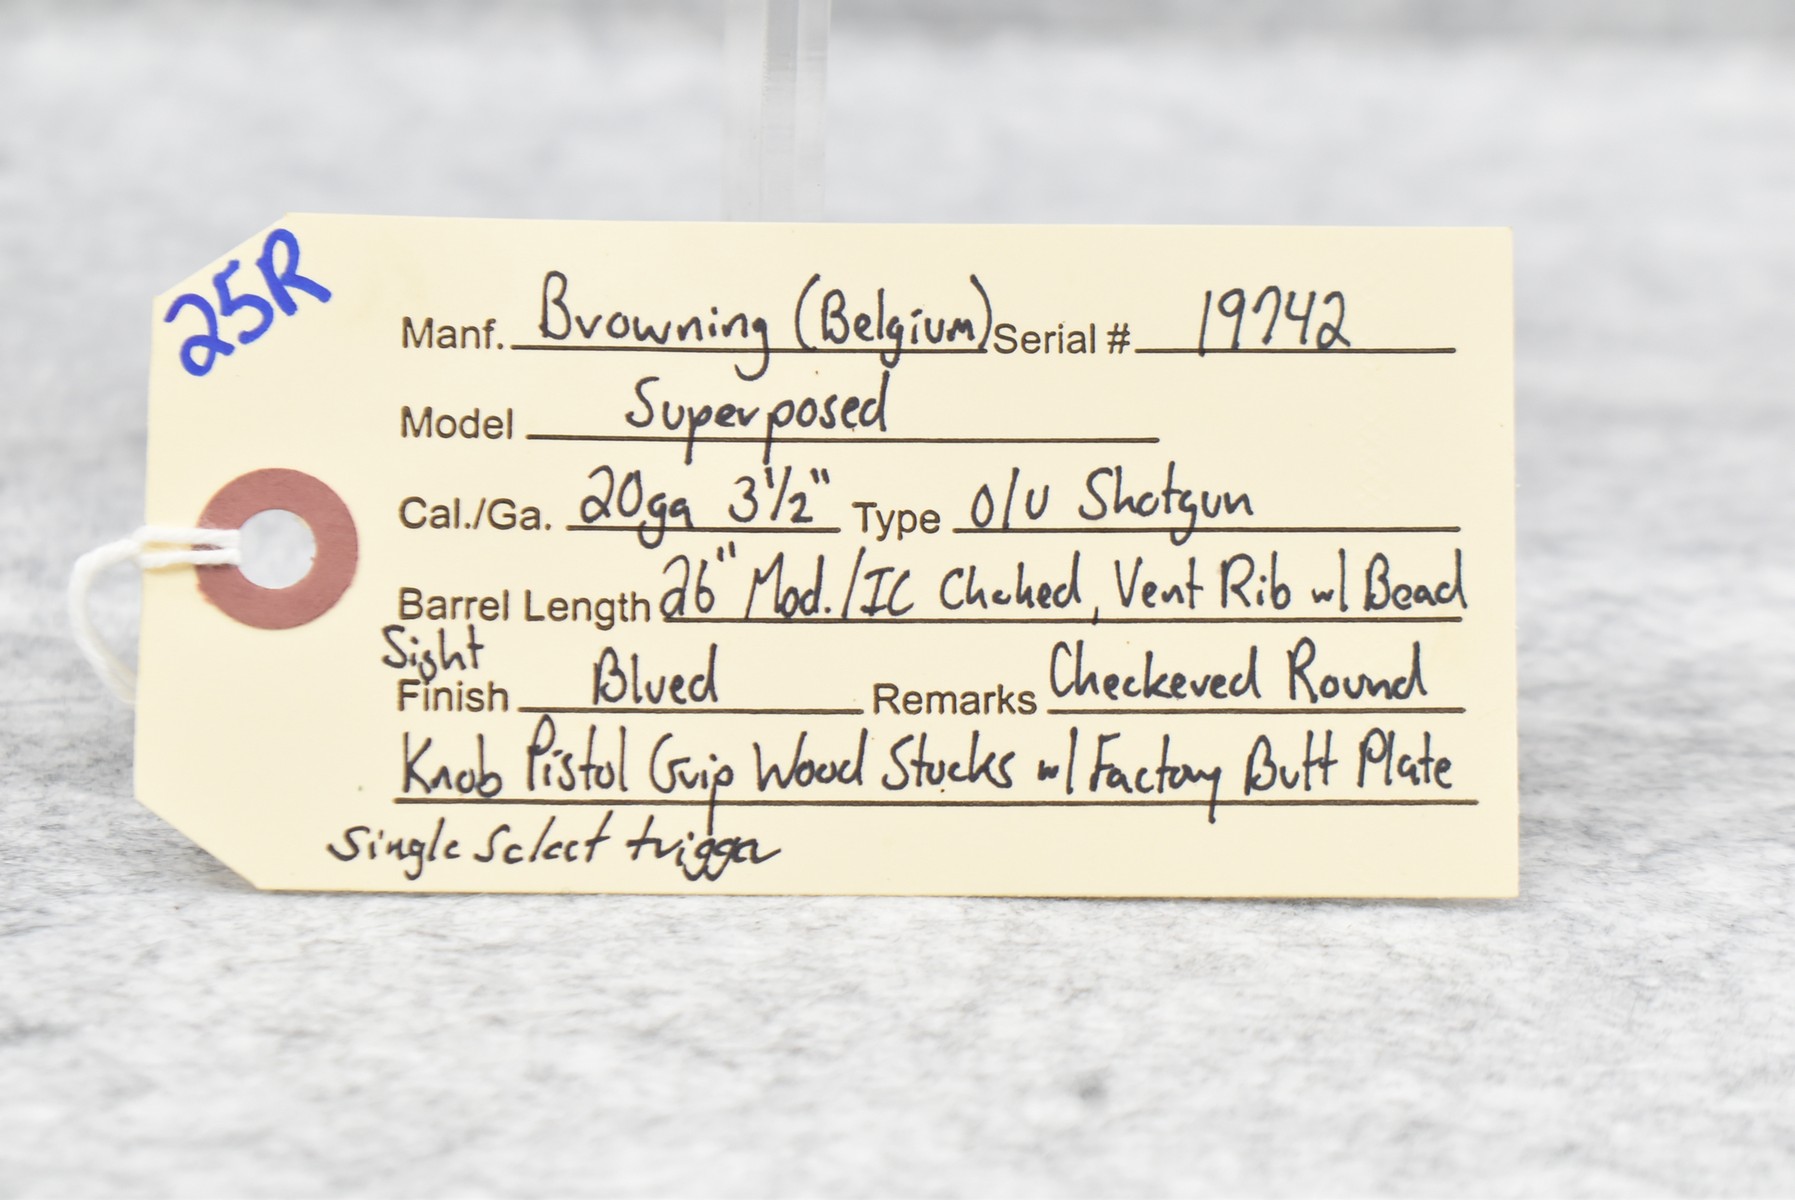 25R
Manf. Browning (Belgium) Serial # 19742
Model Superposed
Cal./Ga. 20ga 3 1/2" Type O/U Shotgun
Barrel Length 26" Mod./IC Choked, Vent Rib w/ Bead
Sight
Finish Blued Remarks Checkered Round
Knob Pistol Grip Wood Stocks w/ Factory Butt Plate
Single Select trigger